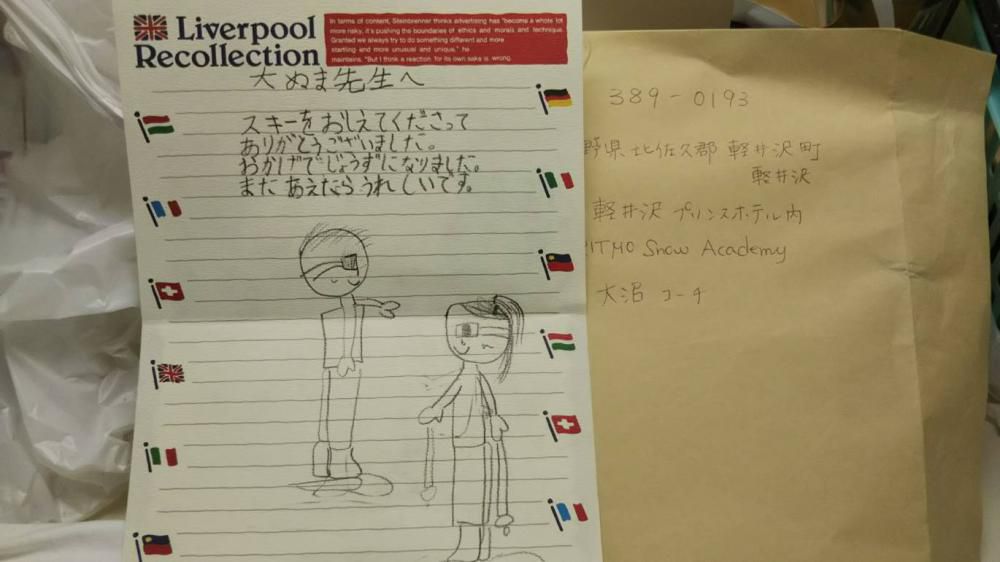 Liverpool
Recollection
In terms of content, Steinbrenner thinks advertising has "become a whole lot
more risky, it's pushing the boundaries of ethics and morals and technique.
Granted we always try to do something different and more
startling and more unusual and unique," he
maintains. "But I think a reaction for its own sake is wrong.
大ぬま先生へ
スキーをおしえてくださって
ありがとうございました。
おかげでじょうずになりました。
またあえたらうれしいです。
389-0193
野県北佐久郡 軽井沢町
軽井沢
軽井沢 プリンスホテル内
Snow Academy
大沼 コーチ